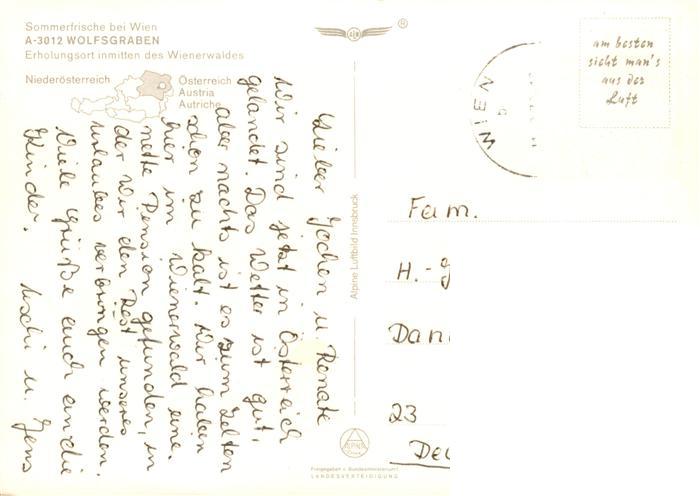 Sommerfrische bei Wien
A-3012 WOLFSGRABEN
Erholungsort inmitten des Wienerwaldes
Niederösterreich
Österreich
Austria
Autriche
Lieber Jochen u Renate
Wir sind jetzt in Österreich
gelandet. Das Wetter ist gut,
aber nachts ist es zum Zelten
schon zu kalt. Wir haben
hier im Wienerwald eine
nette Pension gefunden, in
der wir den Rest unseres
Urlaubes verbringen werden.
Viele Grüße auch an die
Kinder. Uschi u. Jens
Alpine Luftbild Innsbruck
Freigegeben v. Bundesministerium f.
LANDESVERTEIDIGUNG
®
WIEN
am besten
sieht man's
aus der
Luft
Fam.
H.-J
Dan
23
De